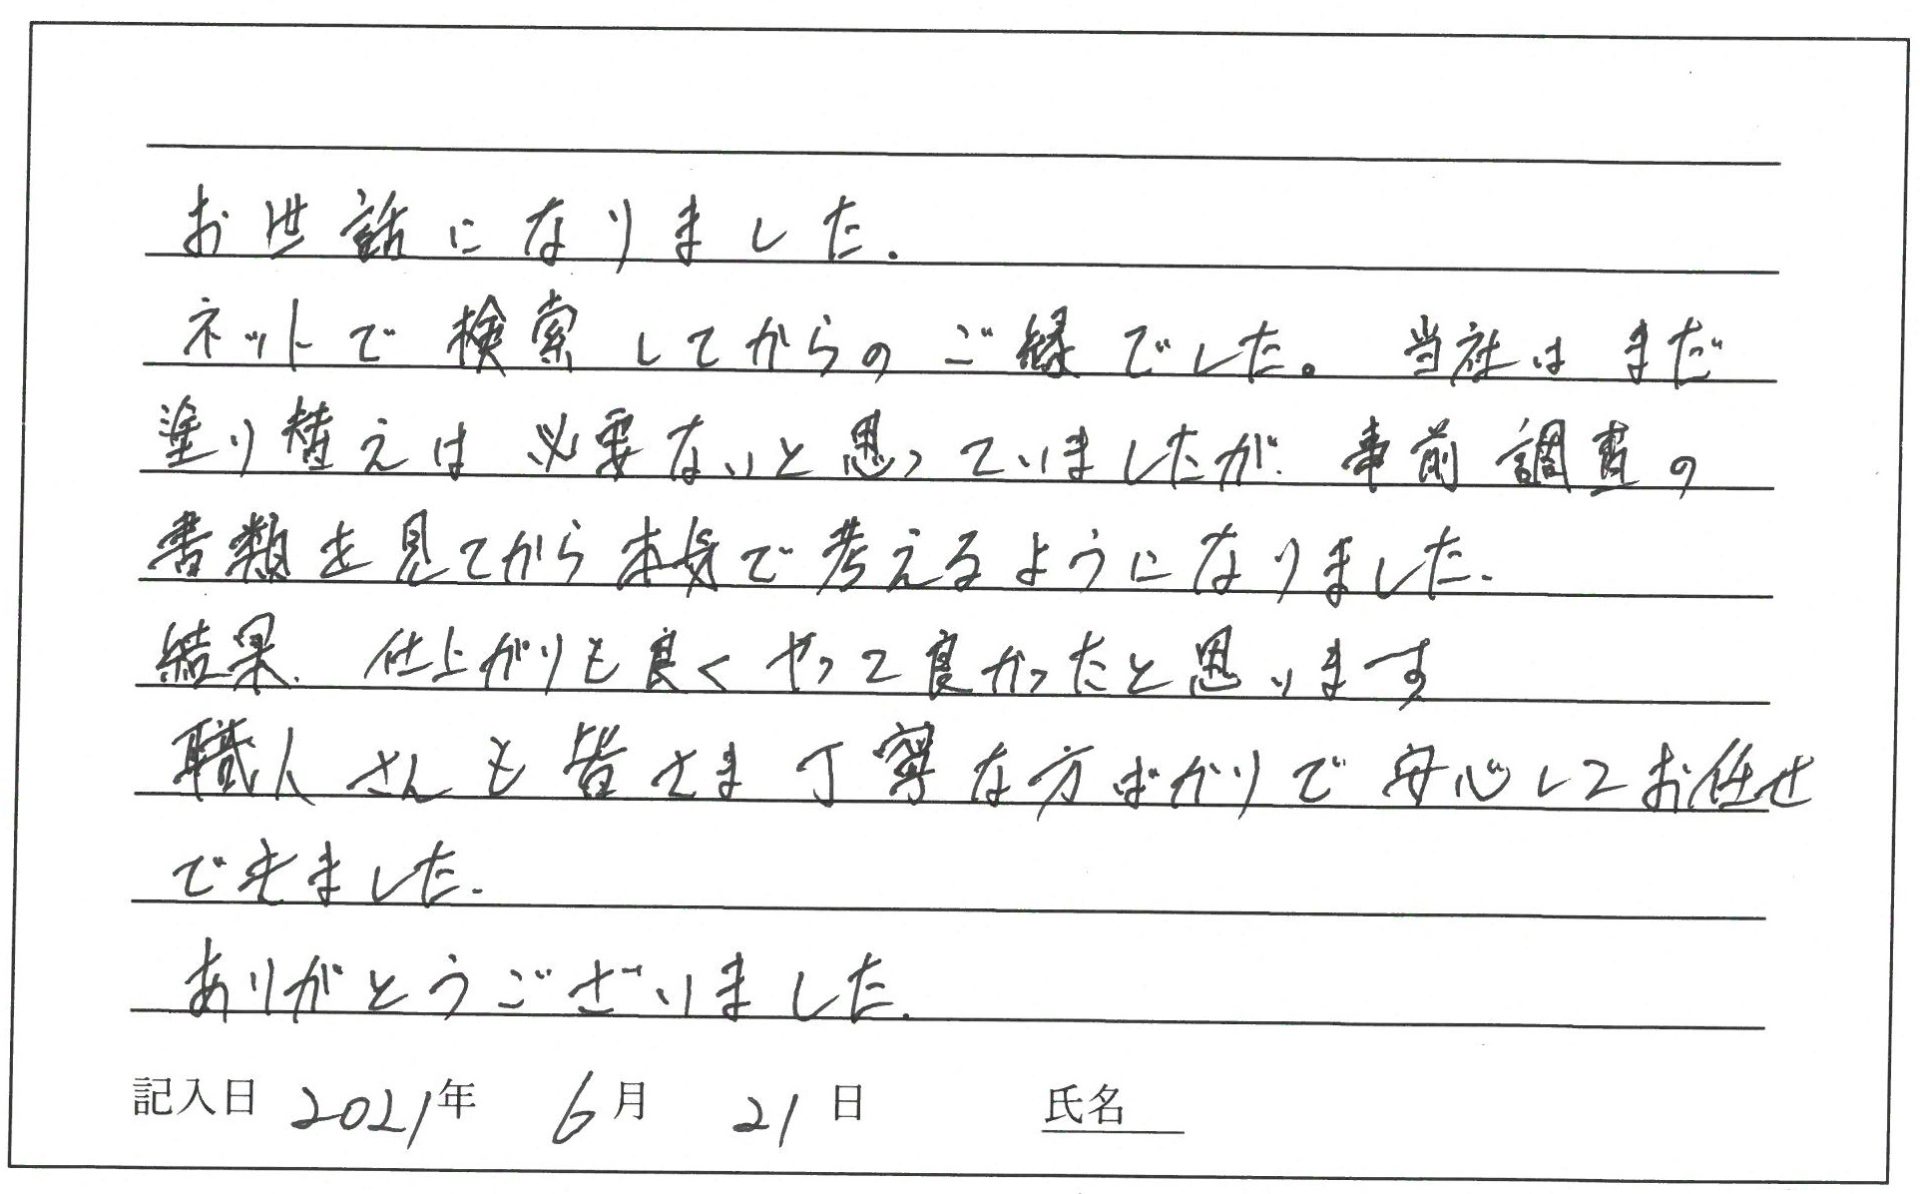 お世話になりました.
ネットで検索してからのご縁でした。当社はまだ
塗り替えは必要ないと思っていましたが.事前調査の
書類を見てから本気で考えるようになりました.
結果.仕上がりも良くやって良かったと思います
職人さんも皆さま丁寧な方ばかりで安心してお任せ
できました.
ありがとうございました.
記入日 2021年 6月 21日 氏名